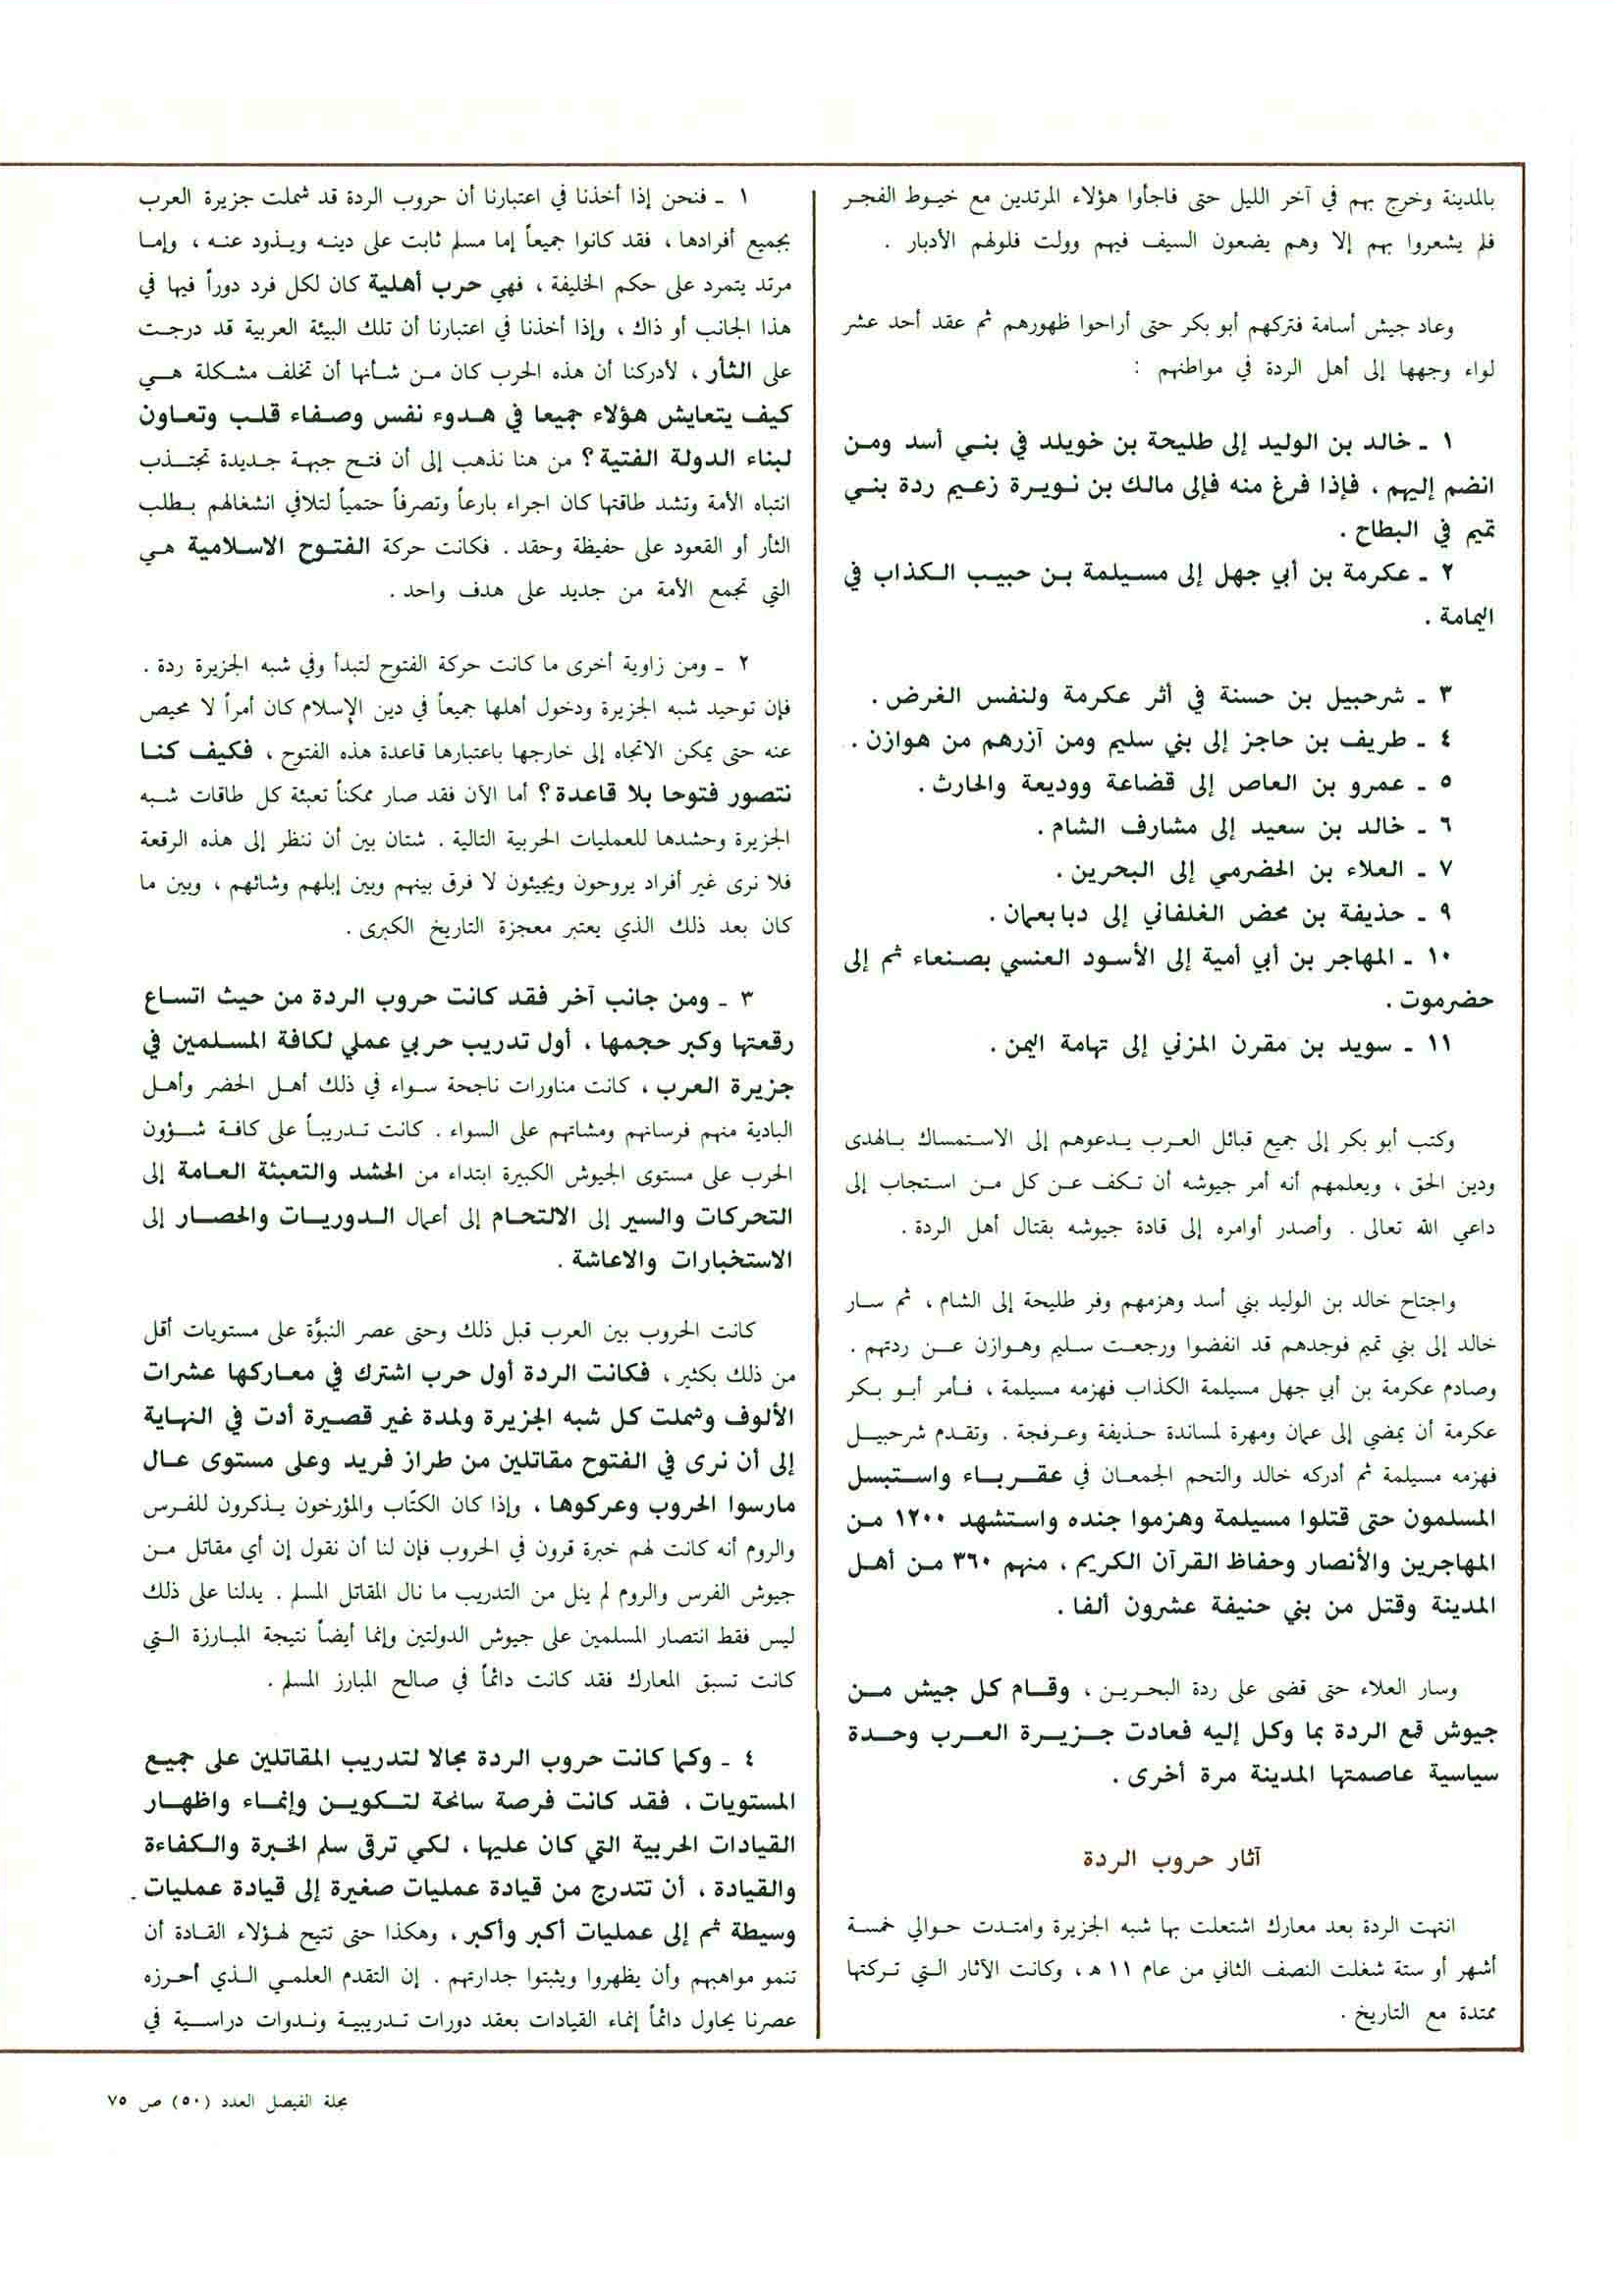 بالمدينة وخرج بهم في آخر الليل حتى فاجأوا هؤلاء المرتدين مع خيوط الفجر
فلم يشعروا بهم إلا وهم يضعون السيف فيهم وولت فلولهم الأدبار .
وعاد جيش أسامة فتركهم أبو بكر حتى أراحوا ظهورهم ثم عقد أحد عشر
لواء وجهها إلى أهل الردة في مواطنهم :
١ ـ خالد بن الوليد إلى طليحة بن خويلد في بني أسد ومن
انضم إليهم ، فإذا فرغ منه فإلى مالك بن نويرة زعيم ردة بني
تميم في البطاح .
٢ ـ عكرمة بن أبي جهل إلى مسيلمة بن حبيب الكذاب في
اليمامة .
٣ ـ شرحبيل بن حسنة في أثر عكرمة ولنفس الغرض .
٤ ـ طريف بن حاجز إلى بني سليم ومن آزرهم من هوازن .
٥ ـ عمرو بن العاص إلى قضاعة ووديعة والحارث .
٦ ـ خالد بن سعيد إلى مشارف الشام .
٧ ـ العلاء بن الحضرمي إلى البحرين .
٩ ـ حذيفة بن محض الغلفاني إلى دبا بعمان .
١٠ ـ المهاجر بن أبي أمية إلى الأسود العنسي بصنعاء ثم إلى
حضرموت .
١١ ـ سويد بن مقرن المزني إلى تهامة اليمن .
وكتب أبو بكر إلى جميع قبائل العرب يدعوهم إلى الاستمساك بالهدى
ودين الحق ، ويعلمهم أنه أمر جيوشه أن تكف عن كل من استجاب إلى
داعي الله تعالى . وأصدر أوامره إلى قادة جيوشه بقتال أهل الردة .
واجتاح خالد بن الوليد بني أسد وهزمهم وفر طليحة إلى الشام ، ثم سار
خالد إلى بني تميم فوجدهم قد انفضوا ورجعت سليم وهوازن عن ردتهم .
وصادم عكرمة بن أبي جهل مسيلمة الكذاب فهزمه مسيلمة ، فأمر أبو بكر
عكرمة أن يمضي إلى عمان ومهرة لمساندة حذيفة وعرفجة . وتقدم شرحبيل
فهزمه مسيلمة ثم أدركه خالد والتحم الجمعان في عقرباء واستبسل
المسلمون حتى قتلوا مسيلمة وهزموا جنده واستشهد ١٢٠٠ من
المهاجرين والأنصار وحفاظ القرآن الكريم ، منهم ٣٦٠ من أهل
المدينة وقتل من بني حنيفة عشرون ألفا .
وسار العلاء حتى قضى على ردة البحرين ، وقام كل جيش من
جيوش قمع الردة بما وكل إليه فعادت جزيرة العرب وحدة
سياسية عاصمتها المدينة مرة أخرى .
آثار حروب الردة
انتهت الردة بعد معارك اشتعلت بها شبه الجزيرة وامتدت حوالي خمسة
أشهر أو ستة شغلت النصف الثاني من عام ١١ هـ ، وكانت الآثار التي تركتها
ممتدة مع التاريخ .
١ ـ فنحن إذا أخذنا في اعتبارنا أن حروب الردة قد شملت جزيرة العرب
بجميع أفرادها ، فقد كانوا جميعاً إما مسلم ثابت على دينه ويذود عنه ، وإما
مرتد يتمرد على حكم الخليفة ، فهي حرب أهلية كان لكل فرد دوراً فيها في
هذا الجانب أو ذاك ، وإذا أخذنا في اعتبارنا أن تلك البيئة العربية قد درجت
على الثأر ، لأدركنا أن هذه الحرب كان من شأنها أن تخلف مشكلة هي
كيف يتعايش هؤلاء جميعا في هدوء نفس وصفاء قلب وتعاون
لبناء الدولة الفتية ؟ من هنا نذهب إلى أن فتح جبهة جديدة تجتذب
انتباه الأمة وتشد طاقتها كان اجراء بارعاً وتصرفاً حتمياً لتلافي انشغالهم بطلب
الثأر أو القعود على حفيظة وحقد . فكانت حركة الفتوح الاسلامية هي
التي تجمع الأمة من جديد على هدف واحد .
٢ ـ ومن زاوية أخرى ما كانت حركة الفتوح لتبدأ وفي شبه الجزيرة ردة .
فإن توحيد شبه الجزيرة ودخول أهلها جميعاً في دين الإسلام كان أمراً لا محيص
عنه حتى يمكن الاتجاه إلى خارجها باعتبارها قاعدة هذه الفتوح ، فكيف كنا
نتصور فتوحا بلا قاعدة ؟ أما الآن فقد صار ممكناً تعبئة كل طاقات شبه
الجزيرة وحشدها للعمليات الحربية التالية . شتان بين أن ننظر إلى هذه الرقعة
فلا نرى غير أفراد يروحون ويجيئون لا فرق بينهم وبين إبلهم وشائهم ، وبين ما
كان بعد ذلك الذي يعتبر معجزة التاريخ الكبرى .
٣ ـ ومن جانب آخر فقد كانت حروب الردة من حيث اتساع
رقعتها وكبر حجمها ، أول تدريب حربي عملي لكافة المسلمين في
جزيرة العرب ، كانت مناورات ناجحة سواء في ذلك أهل الحضر وأهل
البادية منهم فرسانهم ومشاتهم على السواء . كانت تدريباً على كافة شؤون
الحرب على مستوى الجيوش الكبيرة ابتداء من الحشد والتعبئة العامة إلى
التحركات والسير إلى الالتحام إلى أعمال الدوريات والحصار إلى
الاستخبارات والاعاشة .
كانت الحروب بين العرب قبل ذلك وحتى عصر النبوَّة على مستويات أقل
من ذلك بكثير ، فكانت الردة أول حرب اشترك في معاركها عشرات
الألوف وشملت كل شبه الجزيرة ولمدة غير قصيرة أدت في النهاية
إلى أن نرى في الفتوح مقاتلين من طراز فريد وعلى مستوى عال
مارسوا الحروب وعركوها ، وإذا كان الكتّاب والمؤرخون يذكرون للفرس
والروم أنه كانت لهم خبرة قرون في الحروب فإن لنا أن نقول إن أي مقاتل من
جيوش الفرس والروم لم ينل من التدريب ما نال المقاتل المسلم . يدلنا على ذلك
ليس فقط انتصار المسلمين على جيوش الدولتين وإنما أيضاً نتيجة المبارزة التي
كانت تسبق المعارك فقد كانت دائماً في صالح المبارز المسلم .
٤ ـ وكما كانت حروب الردة مجالا لتدريب المقاتلين على جميع
المستويات ، فقد كانت فرصة سانحة لتكوين وإنماء واظهار
القيادات الحربية التي كان عليها ، لكي ترقى سلم الخبرة والكفاءة
والقيادة ، أن تتدرج من قيادة عمليات صغيرة إلى قيادة عمليات
وسيطة ثم إلى عمليات أكبر وأكبر ، وهكذا حتى تتيح لهؤلاء القادة أن
تنمو مواهبهم وأن يظهروا ويثبتوا جدارتهم . إن التقدم العلمي الذي أحرزه
عصرنا يحاول دائماً إنماء القيادات بعقد دورات تدريبية وندوات دراسية في
مجلة الفيصل العدد (٥٠) ص ٧٥